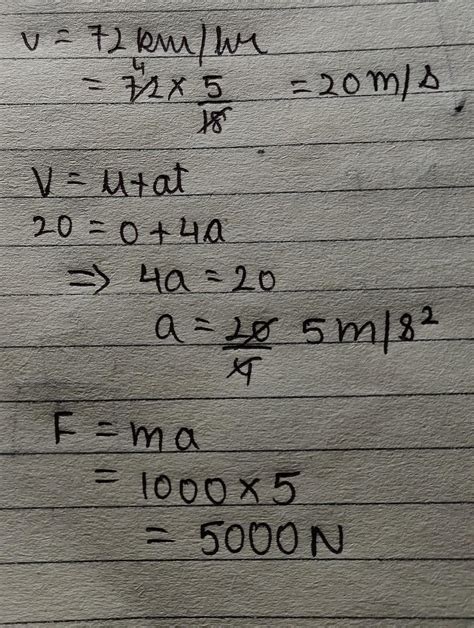 v = 72 km/hr
= 72 4 × 5/18 = 20 m/s
V = u+at
20 = 0 + 4a
⇒ 4a = 20
a = 20/4 5 m/s²
F = ma
= 1000 × 5
= 5000 N